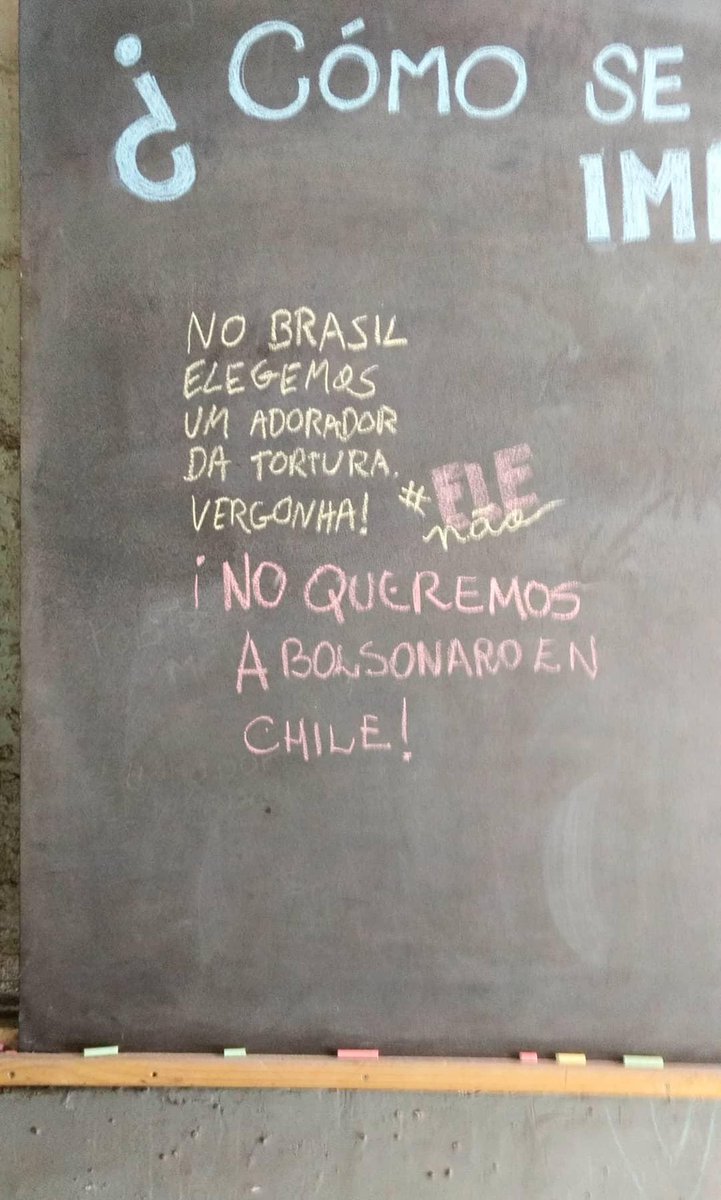 ¿CÓMO SE
NO BRASIL
ELEGEMOS
UM ADORADOR
DA TORTURA.
VERGONHA! #ELE
não
¡NO QUEREMOS
A BOLSONARO EN
CHILE!